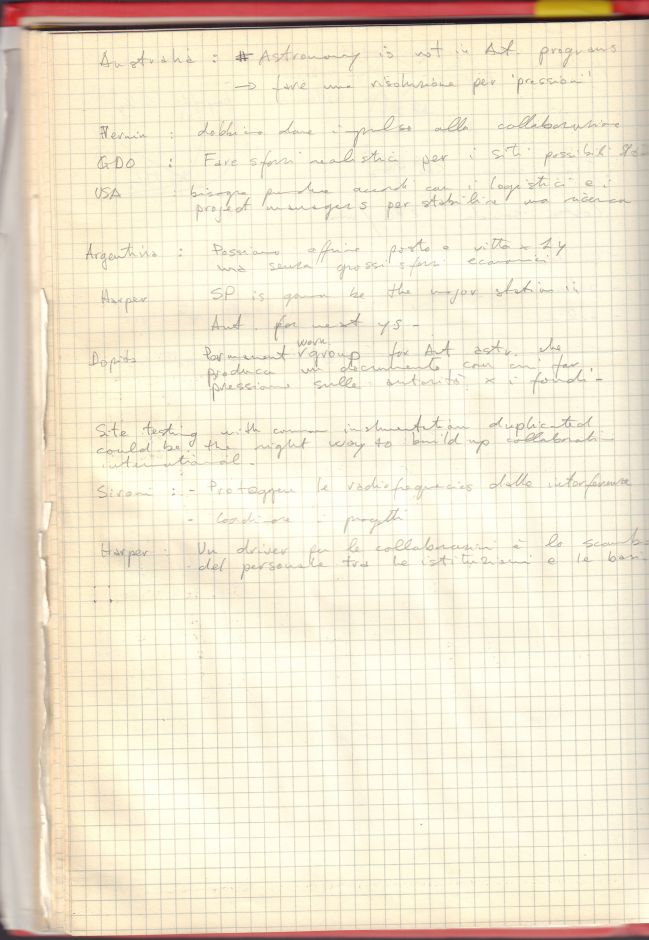 Australia : # Astronomy is not in Ant. programs
→ fare una risoluzione per 'pressioni'
: dobbiamo dare impulso alla collaborazione
GDO : Fare sforzi realistici per i siti possibili
USA : bisogna prendere accordi con i logistici e i
project managers per stabilire una ricerca
Argentina : Possiamo offrire posto e vitto x 1 y
ma senza grossi sforzi economici
Harper SP is gonna be the major station in
Ant. for next ys -
Dopita Permanent work group for Ant astr. che
produca un documento con cui far
pressione sulle autorità x i fondi -
Site testing with common instrumentation duplicated
could be the right way to build up collaborati
international -
Sironi : - Proteggere le radiofrequencies dalle interferenze
- Coordinare i progetti
Harper : Un driver per le collaborazioni è lo scambio
del personale tra le istituzioni e le basi